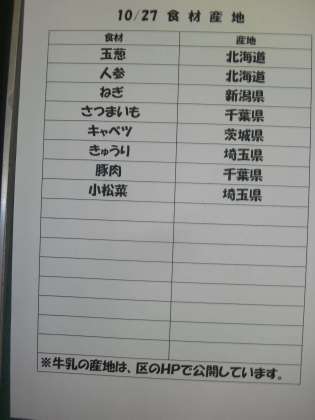 10/27 食材産地
食材 産地
玉葱 北海道
人参 北海道
ねぎ 新潟県
さつまいも 千葉県
キャベツ 茨城県
きゅうり 埼玉県
豚肉 千葉県
小松菜 埼玉県
※牛乳の産地は、区のHPで公開しています。